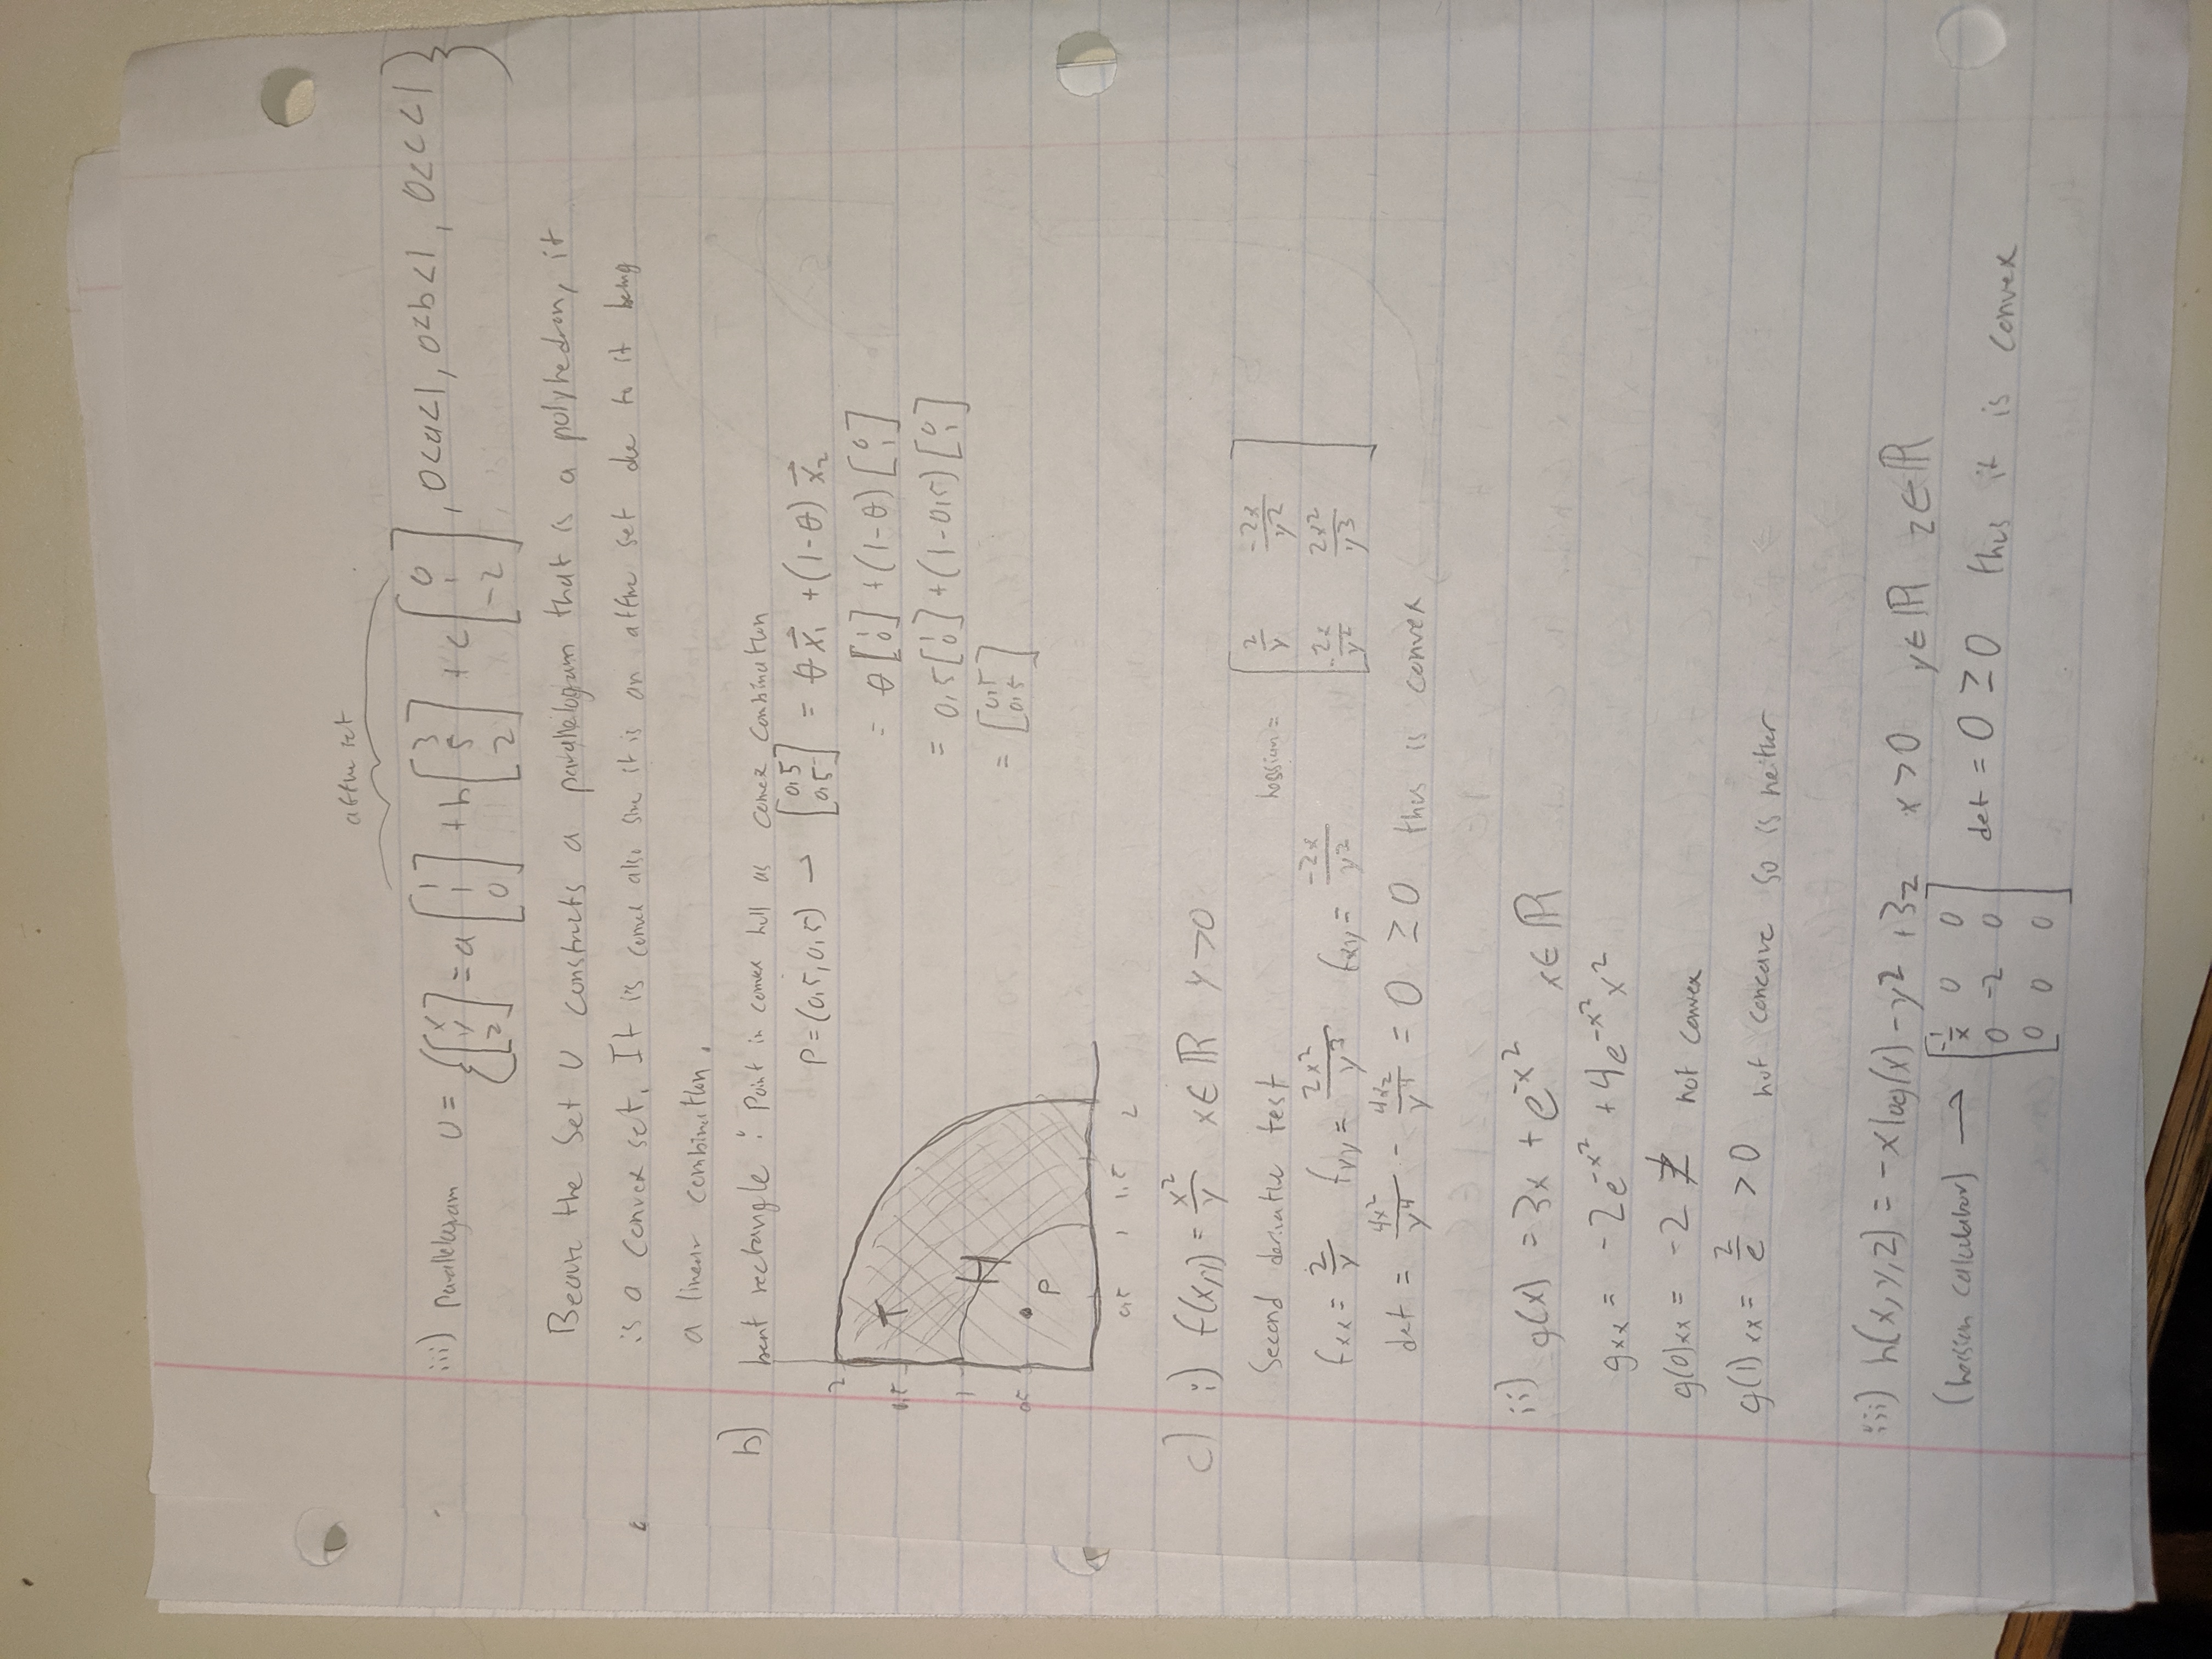 affine set
iii) parallelogram U = { [x y z] = a [1 1 0] + b [3 5 2] + c [0 1 -2] , 0<a<1, 0<b<1, 0<c<1 }
Because the set U constructs a parallelogram that is a polyhedron, it
is a convex set. It is convex also since it is an affine set due to it being
a linear combination.
b) bent rectangle : Point in convex hull as convex combination
P = (0,5, 0,5) → [0,5 0,5] = θ x⃗₁ + (1-θ) x⃗₂
= θ [1 0] + (1-θ) [0 1]
= 0,5 [1 0] + (1-0,5) [0 1]
= [0,5 0,5]
2
T
1,5
1
H
0,5
P
0,5 1 1,5 2
c) i) f(x,y) = x²/y x∈ℝ y>0
Second derivative test hessian = [2/y -2x/y² -2x/y² 2x²/y³]
fxx = 2/y fyy = 2x²/y³ fxy = -2x/y²
det = 4x²/y⁴ - 4x²/y⁴ = 0 ≥ 0 thus is convex
ii) g(x) = 3x + e^-x² x∈ℝ
gxx = -2e^-x² + 4e^-x² x²
g(0)xx = -2 ≱ not convex
g(1)xx = 2/e > 0 not concave so is neither
iii) h(x,y,z) = -xlog(x) - y² + 3z x>0 y∈ℝ z∈ℝ
(hessian calculator) → [-1/x 0 0 0 -2 0 0 0 0] det = 0 ≥ 0 thus it is convex